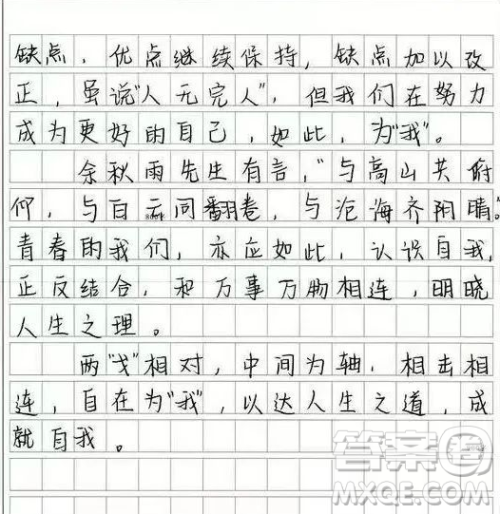 缺点，优点继续保持，缺点加以改
正，虽说“人无完人”，但我们在努力
成为更好的自己，如此，为“我”。
余秋雨先生有言，“与高山共俯
仰，与白云同翻卷，与沧海齐阴晴。”
青春的我们，亦应如此，认识自我，
正反结合，和万事万物相连，明晓
人生之理。
两“戈”相对，中间为轴，相击相
连，自在为“我”，以达人生之道，成
就自我。
答案圈
MXQE.COM